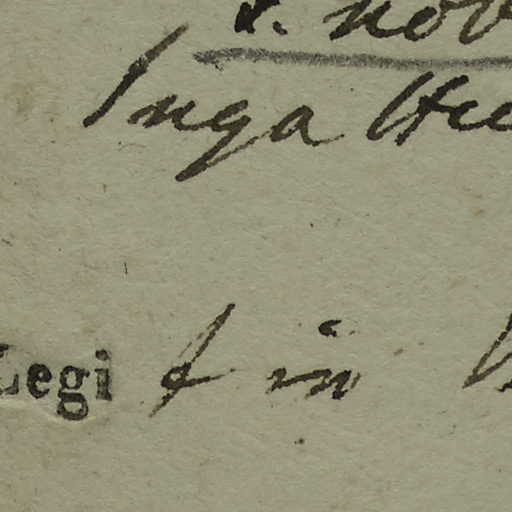 nov
Inga
Legi f in